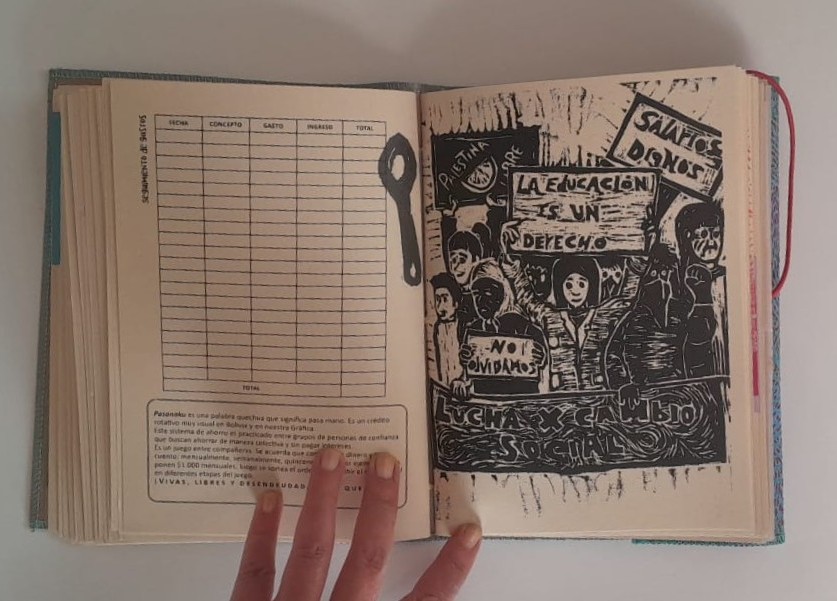 SEGUIMIENTO DE GASTOS
FECHA CONCEPTO GASTO INGRESO TOTAL
TOTAL
Pasanaku es una palabra quechua que significa pasa mano. Es un crédito
rotativo muy usual en Bolivia y en nuestra Gráfica.
Este sistema de ahorro es practicado entre grupos de personas de confianza
que buscan ahorrar de manera colectiva y sin pagar intereses.
Es un juego entre compañerxs. Se acuerda que dinero
cuenta: mensualmente, semanalmente,
ponen $1.000 mensuales, luego se sortea el
en diferentes etapas del juego.
¡VIVAS, LIBRES Y DESENDEUDAD QUE
PALESTINA
SALARIOS
DIGNOS
LA EDUCACIÓN
ES UN
DERECHO
NO
OLVIDAMOS
LUCHA X CAMBIO
SOCIAL